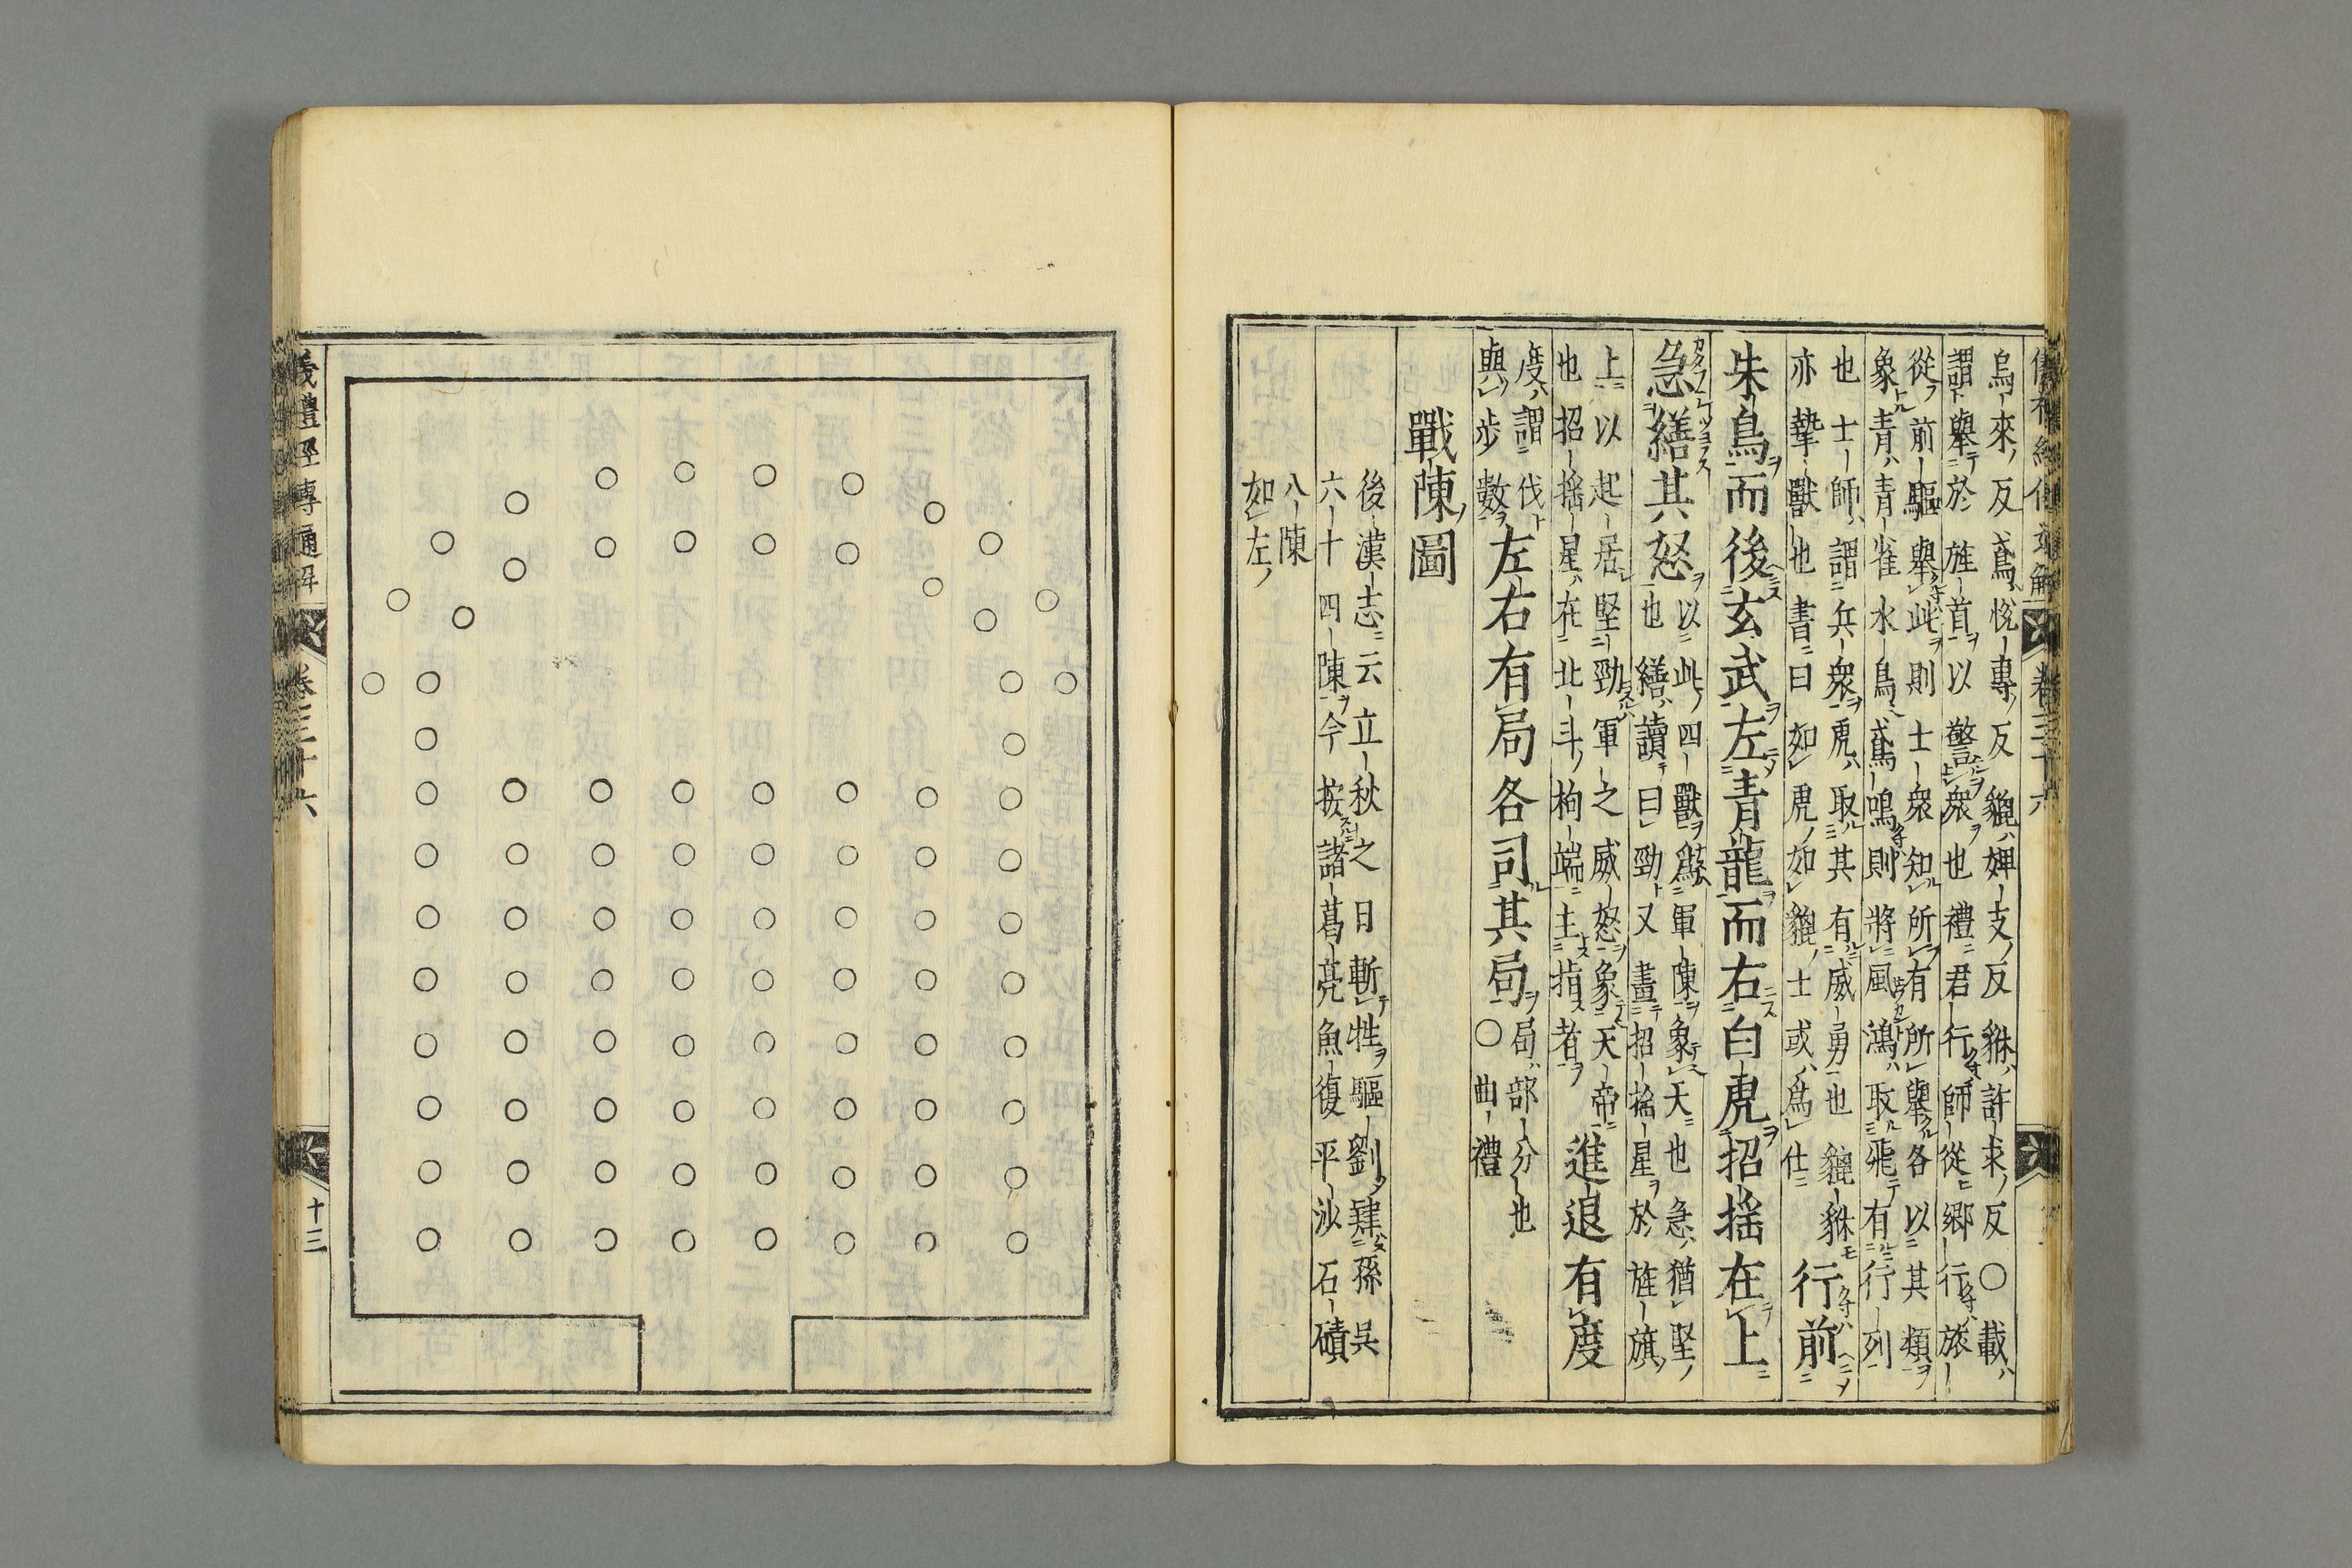 儀禮經傳通解 卷三十六
烏來反鳶悅專反貔婢支反貅許求反〇載
謂舉於旌首以警衆也禮君行師從卿行旅
從前驅舉此則士衆知所有所舉各以其類
象青青雀水鳥鳶鳴則將風鴻取飛有行列
也士師謂兵衆虎取其有威勇也貔貅
亦摯獸也書曰如虎如貔士或爲仕
行前
朱鳥而後玄武左青龍而右白虎招搖在上
急繕其怒
以此四獸爲軍陳象天也急猶堅
也繕讀曰勁又畫招搖星於旌旗
上以起居堅勁軍之威怒象天帝
也招搖星在北斗杓端主指者
進退有度
度謂伐
與步數
左右有局各司其局
局部分也
〇曲禮
戰陳圖
後漢志云立秋之日斬牲驅劉肄孫吳
六十四陳今按諸葛亮魚復平沙石磧
八陳
如左
儀禮經傳通解 卷三十六 十三